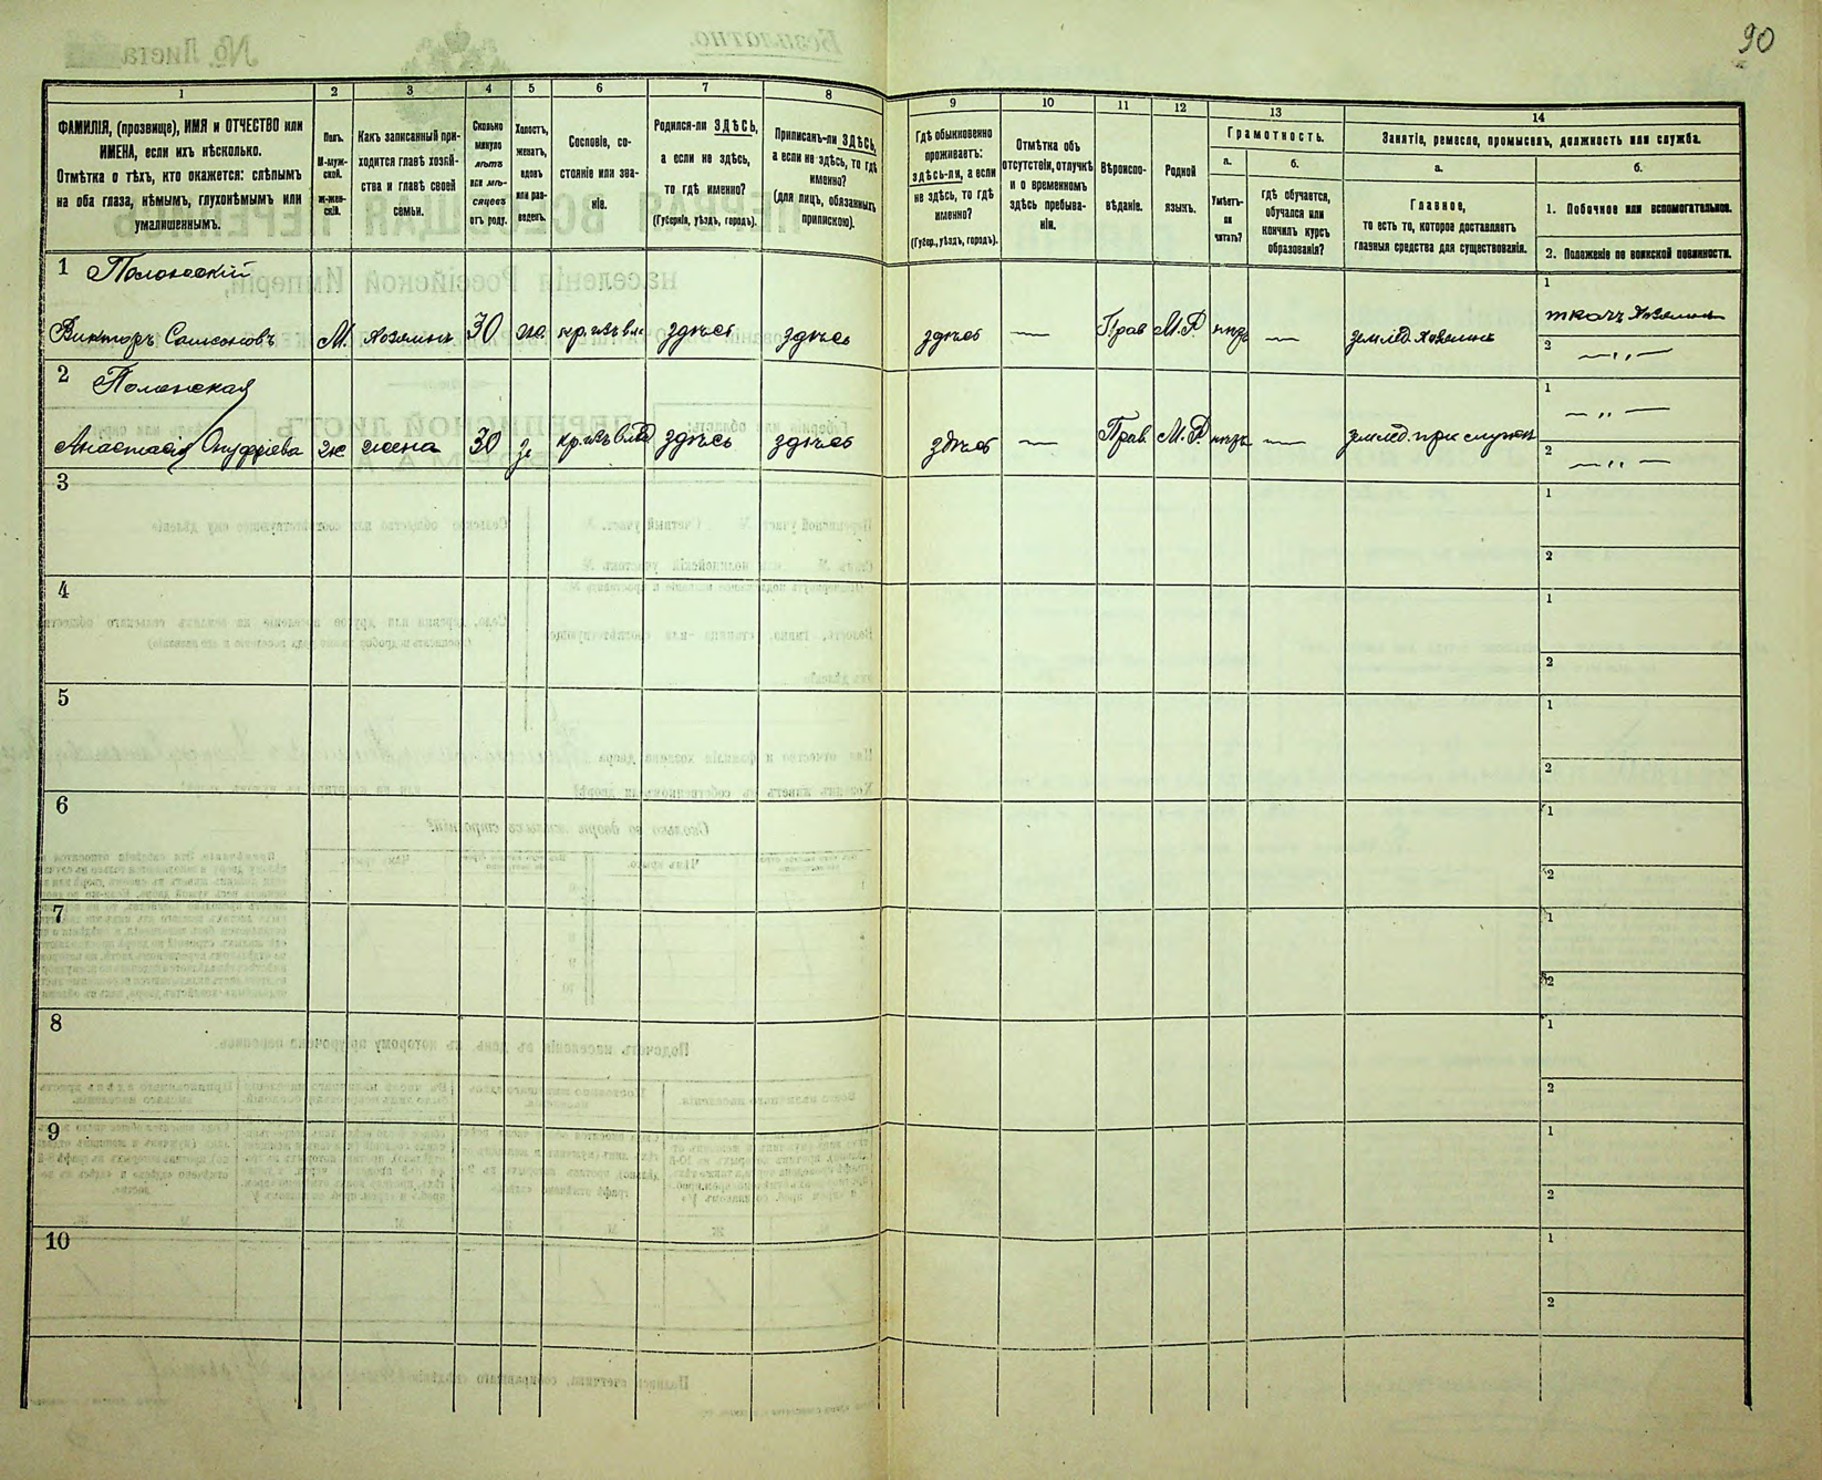 90
1 2 3 4 5 6 7 8 9 10 11 12 13 14
ФАМИЛІЯ, (прозвище), ИМЯ и ОТЧЕСТВО или
ИМЕНА, если ихъ нѣсколько.
Отмѣтка о тѣхъ, кто окажется: слѣпымъ
на оба глаза, нѣмымъ, глухонѣмымъ или
умалишеннымъ.
Полъ.
М-муж-
ской.
Ж-жен-
скій.
Какъ записанный при-
ходится главѣ хозяй-
ства и главѣ своей
семьи.
Сколько
минуло
лѣтъ
или мѣ-
сяцевъ
отъ роду.
Холостъ,
женатъ,
вдовъ
или раз-
веденъ.
Сословіе, со-
стояніе или зва-
ніе.
Родился-ли ЗДѢСЬ,
а если не здѣсь,
то гдѣ именно?
(Губернія, уѣздъ, городъ).
Приписанъ-ли ЗДѢСЬ,
а если не здѣсь, то гдѣ
именно?
(для лицъ, обязанныхъ
припискою).
Гдѣ обыкновенно
проживаетъ:
здѣсь-ли, а если
не здѣсь, то гдѣ
именно?
(Губер., уѣздъ, городъ).
Отмѣтка объ
отсутствіи, отлучкѣ
и о временномъ
здѣсь пребыва-
ніи.
Вѣроиспо-
вѣданіе.
Родной
языкъ.
Грамотность.
а.
Умѣетъ-
ли
читать?
б.
гдѣ обучается,
обучался или
кончилъ курсъ
образованія?
Занятіе, ремесло, промыселъ, должность или служба.
а.
Главное,
то есть то, которое доставляетъ
главныя средства для существованія.
б.
1. Побочное или вспомогательное.
2. Положеніе по воинской повинности.
1 Полонскій
Викторъ Самсоновъ М. хозяинъ 30 здѣсь здѣсь здѣсь — Прав М.Р — землед. хозяинъ
1 ткачъ хозяинъ
2 — „ —
2 Полонская
Анастасія Онуфріева ж жена 30 з здѣсь здѣсь здѣсь — Прав. М.Р — землед.
1 — „ —
2 — „ —
3
1
2
4
1
2
5
1
2
6
1
2
7
1
2
8
1
2
9
1
2
10
1
2